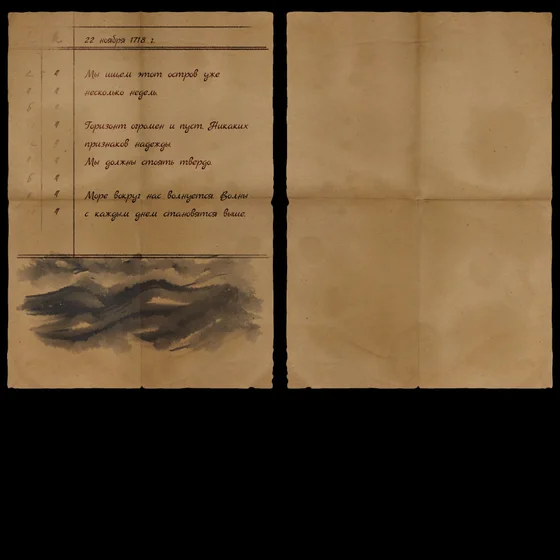 22 ноября 1718 г.
Мы ищем этот остров уже
несколько недель.
Горизонт огромен и пуст. Никаких
признаков надежды
Мы должны стоять твердо.
Море вокруг нас волнуется. Волны
с каждым днем становятся выше.